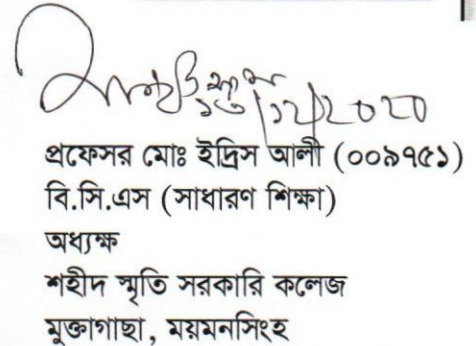 ১৩/১২/২০২০
প্রফেসর মোঃ ইদ্রিস আলী (০০৯৭৫১)
বি.সি.এস (সাধারণ শিক্ষা)
অধ্যক্ষ
শহীদ স্মৃতি সরকারি কলেজ
মুক্তাগাছা, ময়মনসিংহ